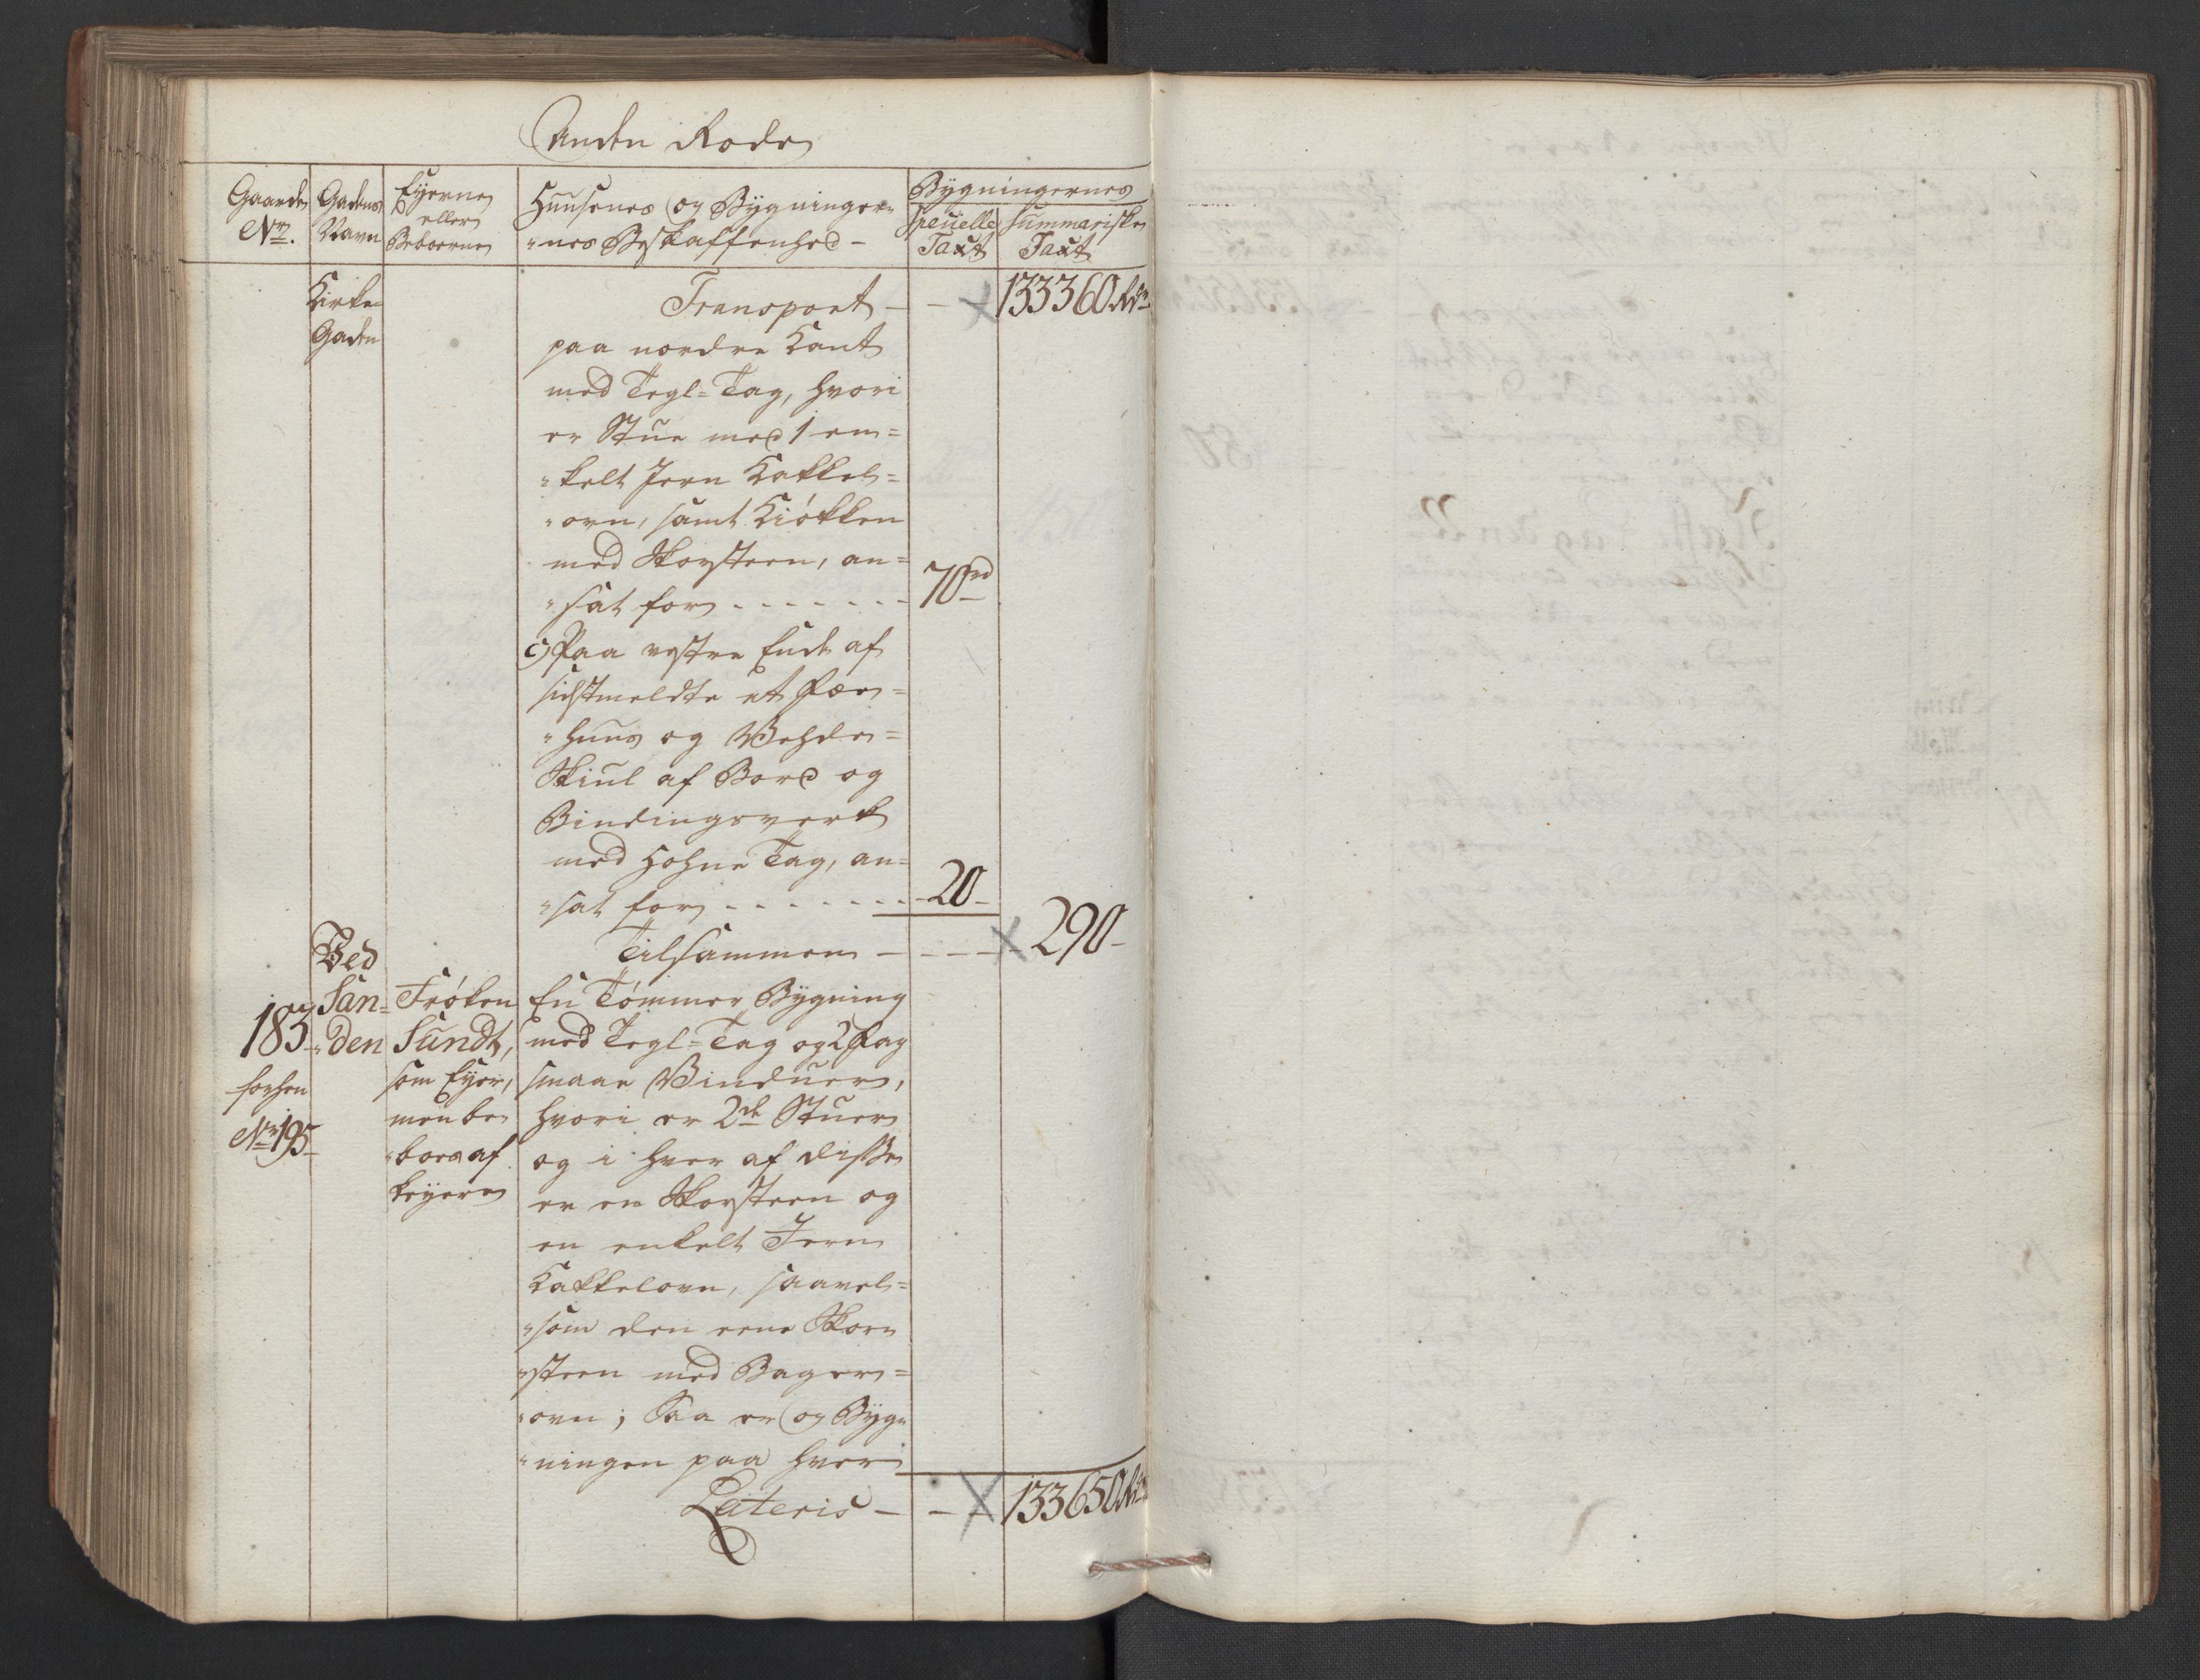 Anden Rode
Gaardens No.
Gadens Navn
Eyerne eller Beboerne
Huusenes og Bygninger-
"nes Beskaffenhed -
Bygningernes
Specielle Taxt
Summariske Taxt
Kirke-
Gaden
Transport - - 133360 Rd
paa nordre Kant
med Tegl-Tag, hvori
er Stue med 1 en-
"kelt Jern Kakkel-
"ovn, samt Kiøkken
med Skorsteen, an-
"sat for - - - - - - 70 rd
c) Paa vestre Ende af
sidstmeldte et Fæe-
"huus og Vehde-
Skiul af Bord og
Bindingsverk
med Hohne Tag, an-
"sat for - - - - - - 20 -
Tilsammen - - - - 290 -
183.
forhen
No. 195
Ved
San-
"den
Frøken
Sundt,
som Eyer,
men be-
"boes af
leyere
En Tømmer Bygning
med Tegl-Tag og 2 Fag
smaae Vinduer,
hvori er 2de Stuer
og i hver af disse
er en Skorsteen og
en enkelt Jern
Kakkelovn, saavel-
"som den eene Skor-
"steen med Bager-
"ovn; Saa er og Byg-
"ningen paa hver
Lateris - - 133650 Rd